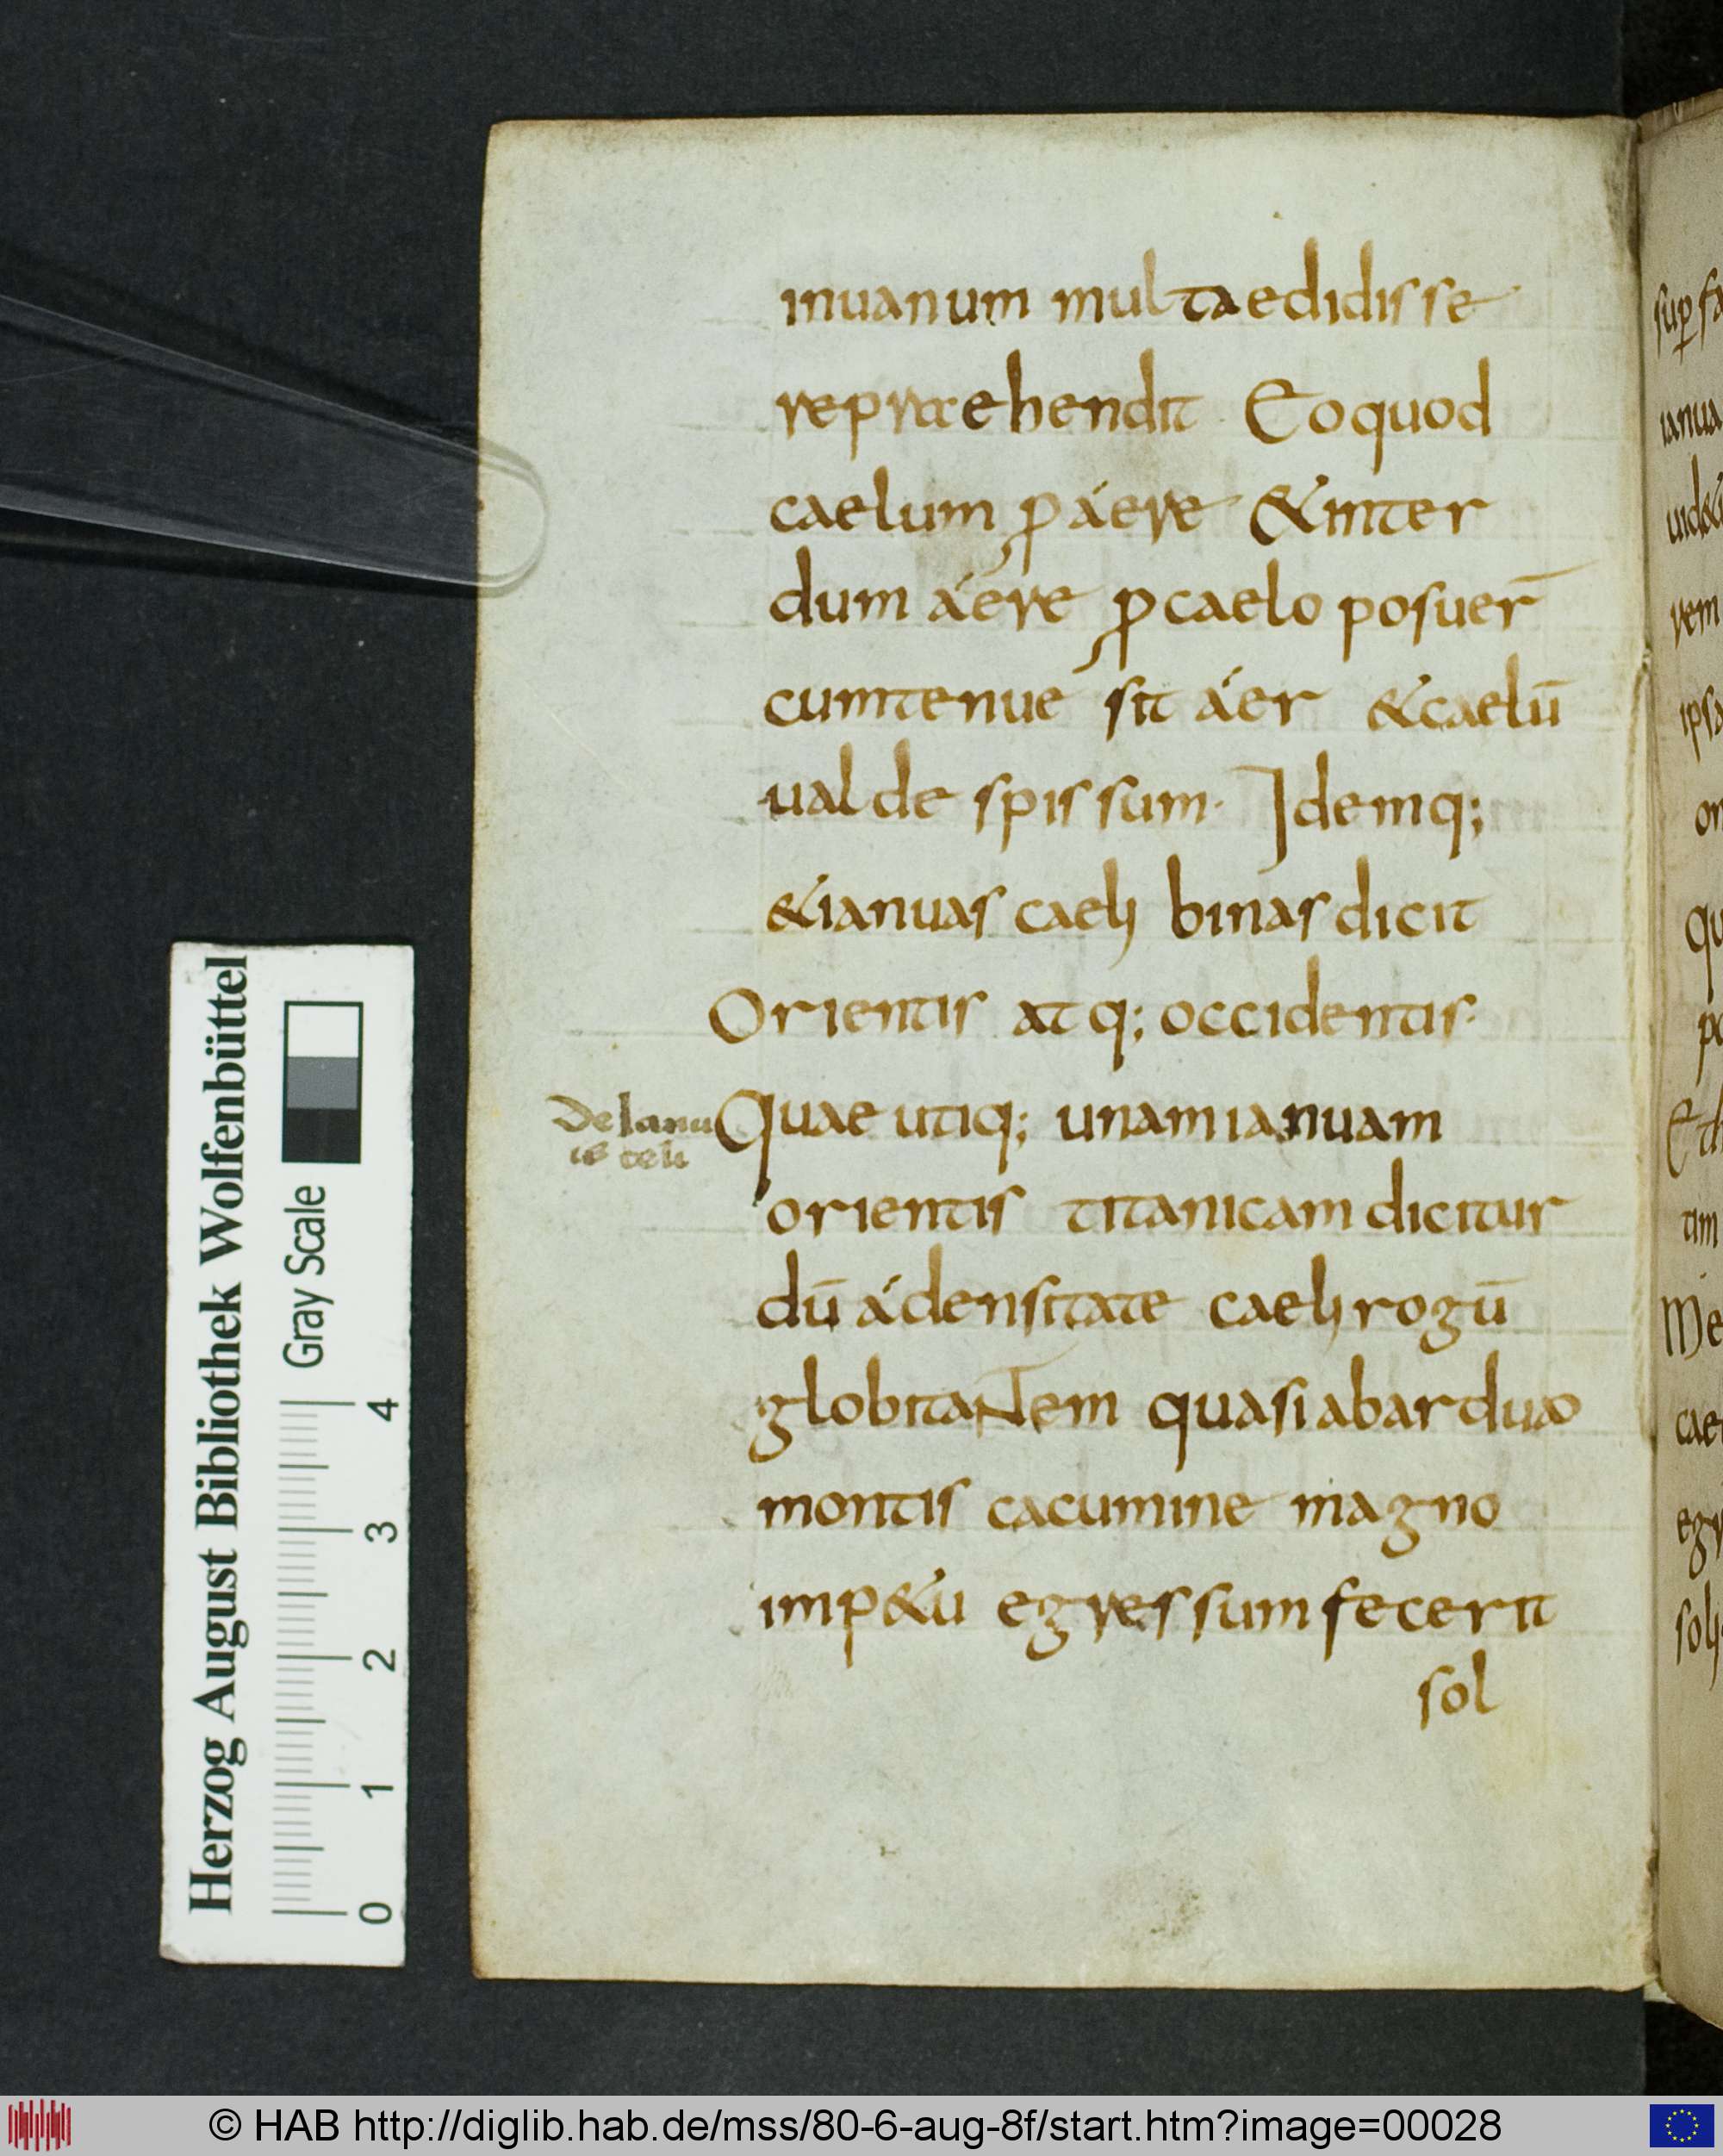 inuanum multa edidisse
repraehendit Eoquod
caelum ꝓ áere & inter
dum áere ꝓ caelo posuer̄
cum tenue sit áer & caelū
ualde spissum· Idemq;
& ianuas caeli binas dicit
Orientis atq; occidentis·
De ianu
is celi
Quae utiq; unam ianuam
orientis titanicam dicitur
dū á densitate caeli rogū
globitantem quasi ab arduo
montis cacumine magno
imp&u egressum fecerit
sol
Herzog August Bibliothek Wolfenbüttel
Gray Scale
0 1 2 3 4
sup fa
ianua
uid&
rem
ipsa
or
qu
po
Et
tim
Me
cae
egr
soli
© HAB http://diglib.hab.de/mss/80-6-aug-8f/start.htm?image=00028